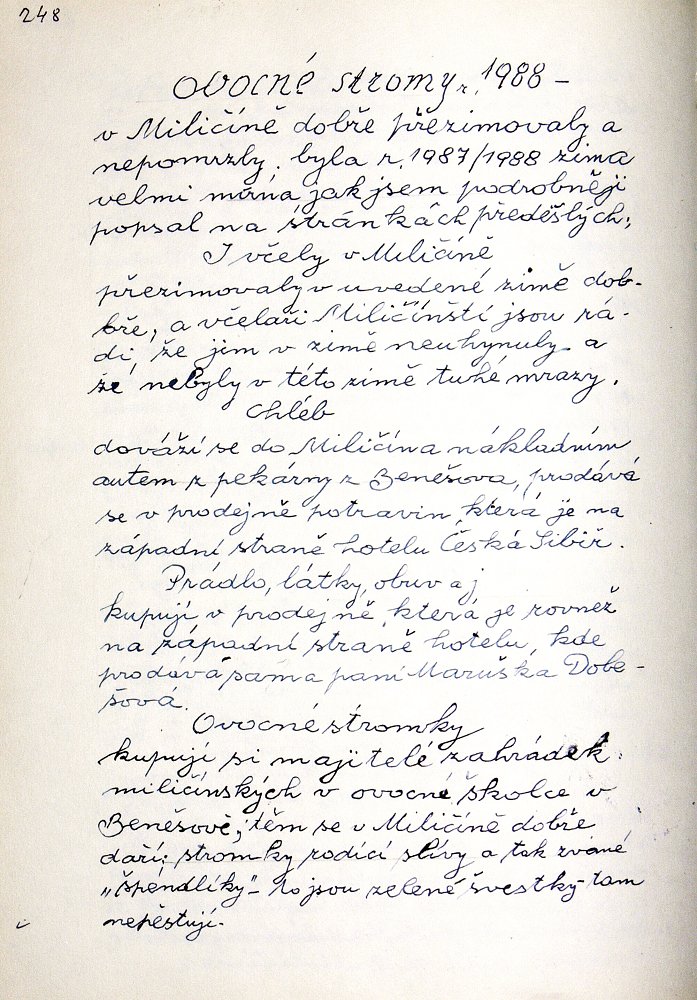 248
Ovocné stromy r. 1988 –
v Miličíně dobře přezimovaly a
nepomrzly. byla r. 1987/1988 zima
velmi mírná, jak jsem podrobněji
popsal na stránkách předešlých;
I včely v Miličíně
přezimovaly v uvedené zimě dob-
bře, a včelaři Miličínští jsou rá-
di, že jim v zimě neuhynuly a
že nebyly v této zimě tuhé mrazy.
Chléb
dováží se do Miličína nákladním
autem z pekárny z Benešova, prodává
se v prodejně potravin, která je na
západní straně hotelu Česká Sibiř.
Prádlo, látky, obuv aj
kupují v prodejně, která je rovněž
na západní straně hotelu, kde
prodává sama paní Maruška Dobe-
šová.
Ovocné stromky
kupují si majitelé zahrádek
miličínských v ovocné školce v
Benešově, těm se v Miličíně dobře
daří; stromky rodící slívy a tak zvané
„špendlíky" – to jsou zelené švestky – tam
nepěstují.